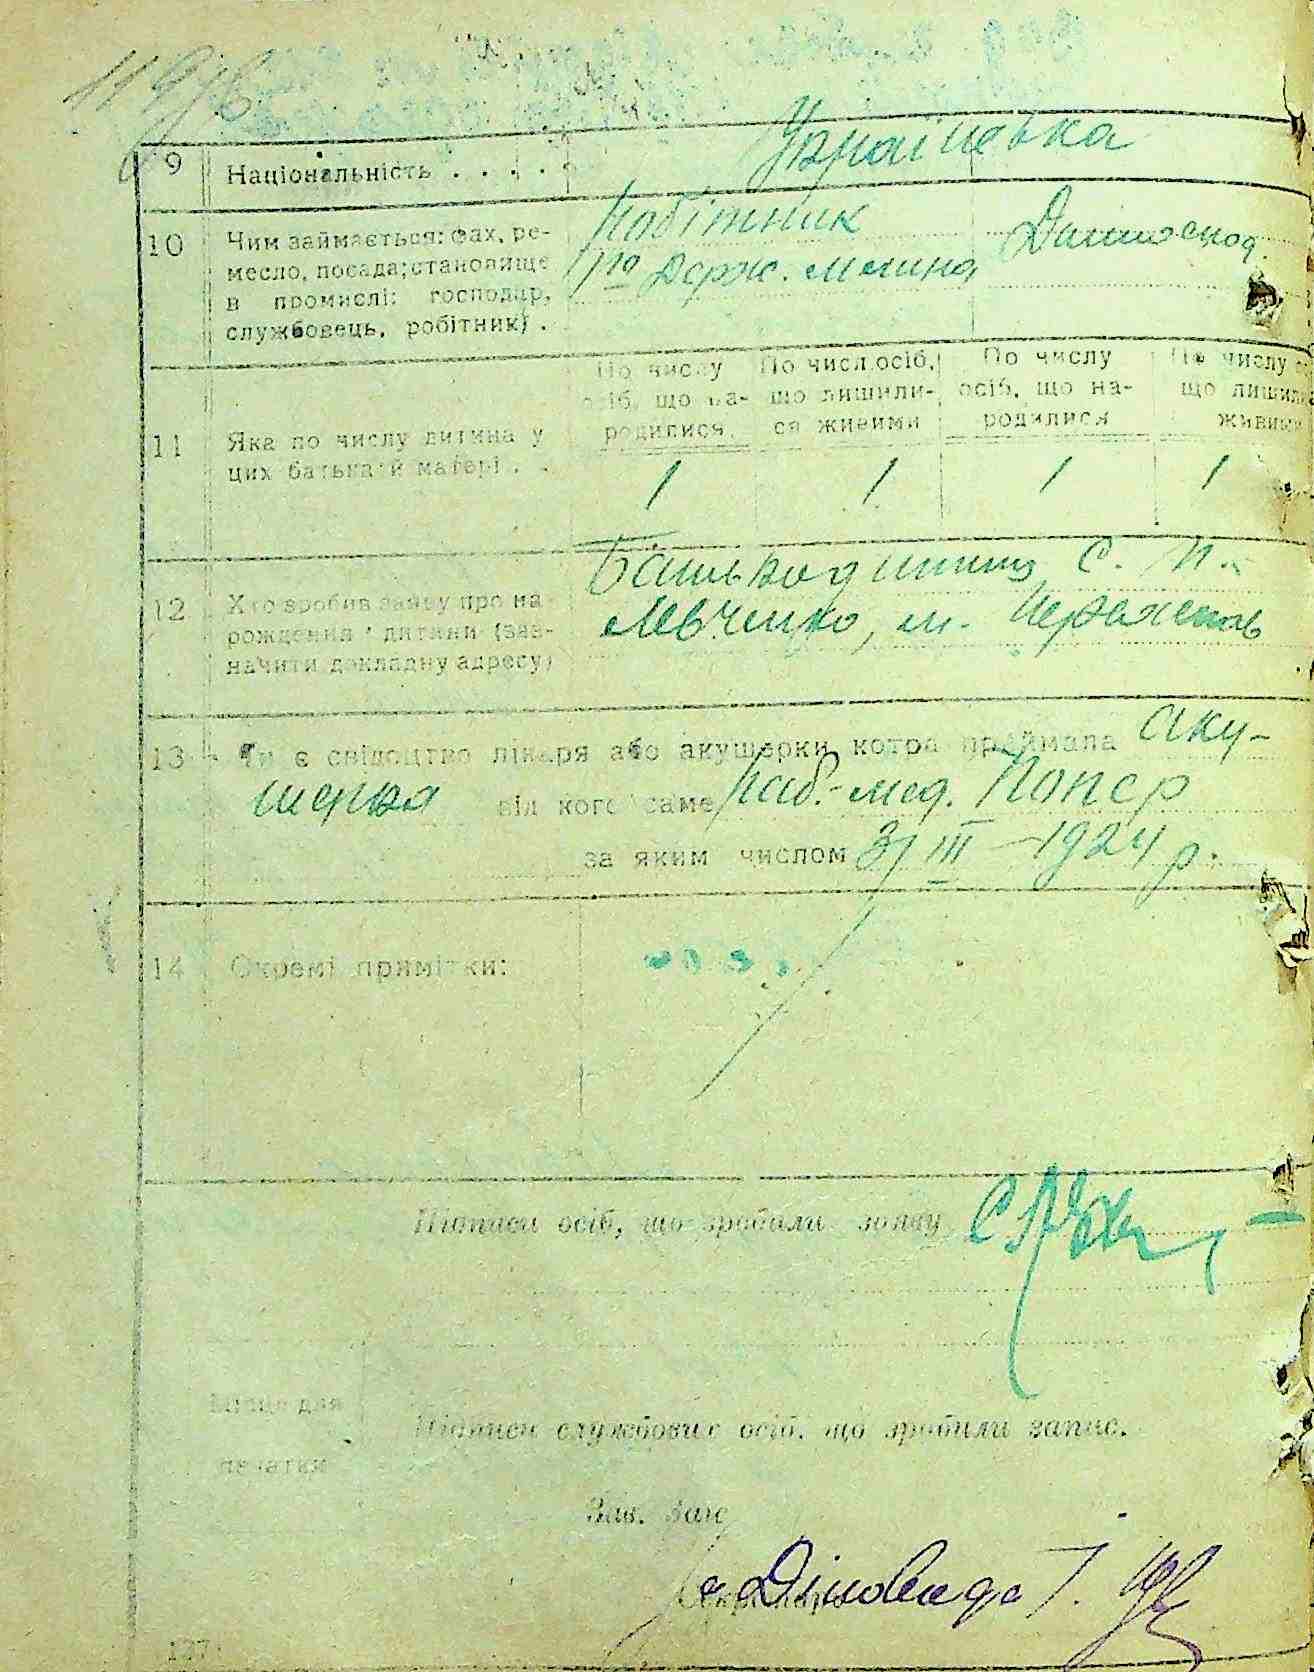 9 Національність . . . .
Українська
10 Чим займається: фах, ре-
месло, посада; становище
в промислі: господар,
службовець, робітник) .
Робітник
Держ. млина
Домоспод.
11 Яка по числу дитина у
цих батька й матері . .
По числу осіб, що на- родилися
По числ. осіб, що лишили- ся живими
По числу осіб, що на- родилися
По числу що лишили живими
1 1 1 1
12 Хто зробив заяву про на-
рождення дитини (заз-
начити докладну адресу)
Батько дитини С. П.
Левченко, м.
13 Чи є свідоцтво лікаря або акушерки, котра приймала Аку-
шерка від кого саме Попер
за яким числом 3/III - 1924 р.
14 Окремі примітки:
Підписи осіб, що зробили заяву
Місце для
печатки
Підписи службових осіб, що зробили запис.
Зав. Загс